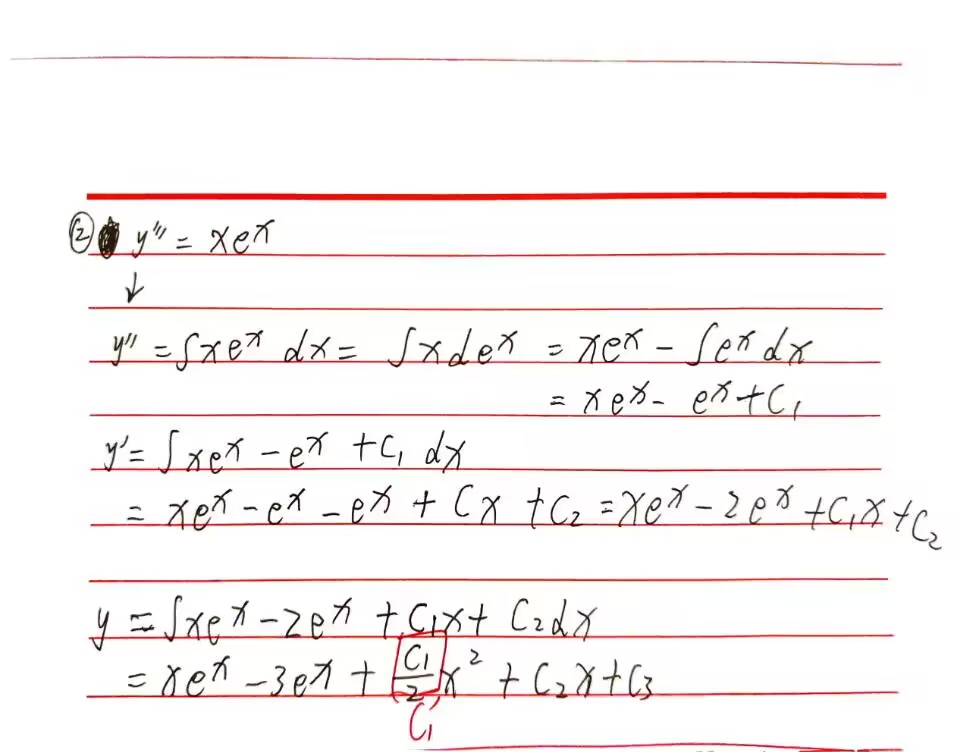 ② y''' = xeˣ
↓
y'' = ∫xeˣ dx = ∫x deˣ = xeˣ - ∫eˣ dx
= xeˣ - eˣ + C₁
y' = ∫xeˣ - eˣ + C₁ dx
= xeˣ - eˣ - eˣ + Cx + C₂ = xeˣ - 2eˣ + C₁x + C₂
y = ∫xeˣ - 2eˣ + C₁x + C₂dx
= xeˣ - 3eˣ + C₁/2 x² + C₂x + C₃
C₁